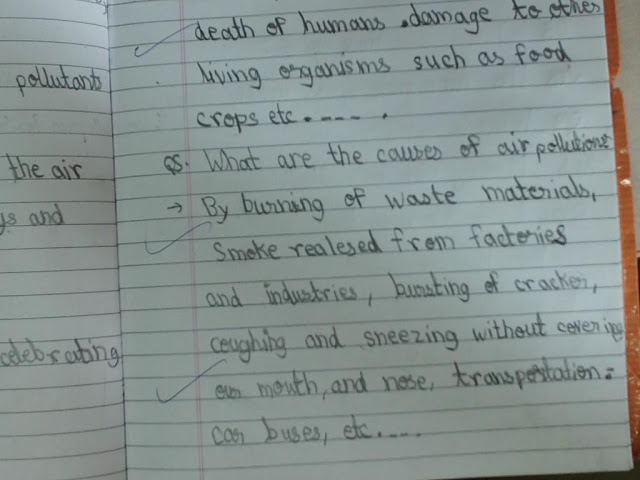 pollutants
the air
ys and
celebrating
death of humans, damage to other
living organisms such as food
crops etc.----.
Q5. What are the causes of air pollutions
→ By burning of waste materials,
Smoke realesed from factories
and industries, bursting of cracker,
coughing and sneezing without covering
our mouth, and nose, transpotation:
car buses, etc.----